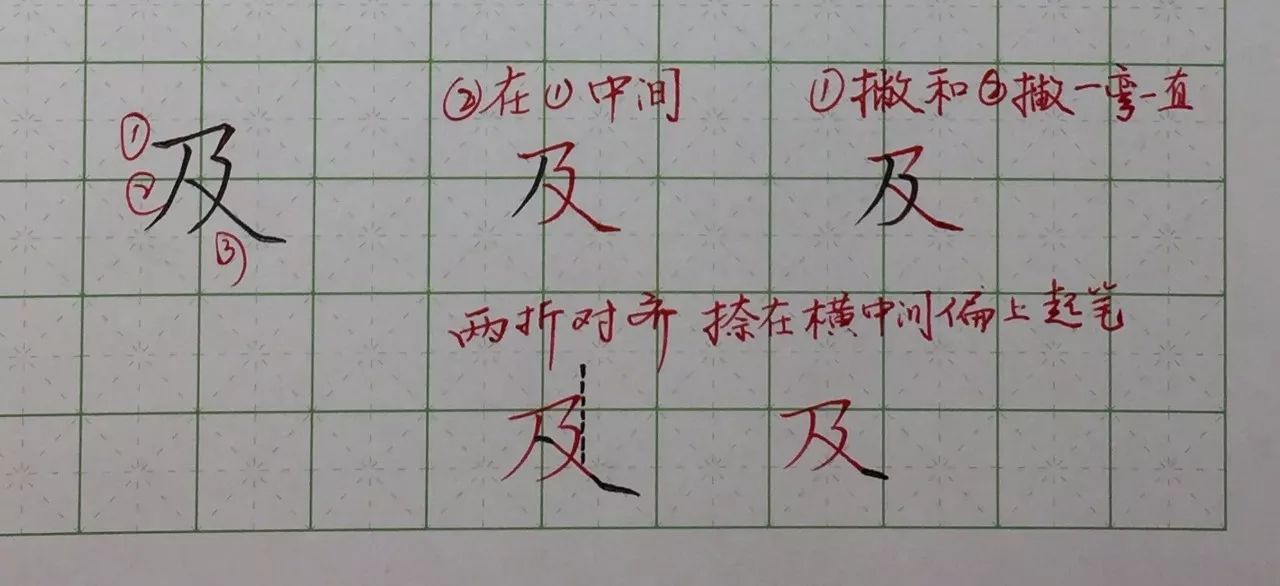 ②在①中间 ①撇和②撇一弯一直
①
②及 及 及
③
两折对齐 捺在横中间偏上起笔
及 及